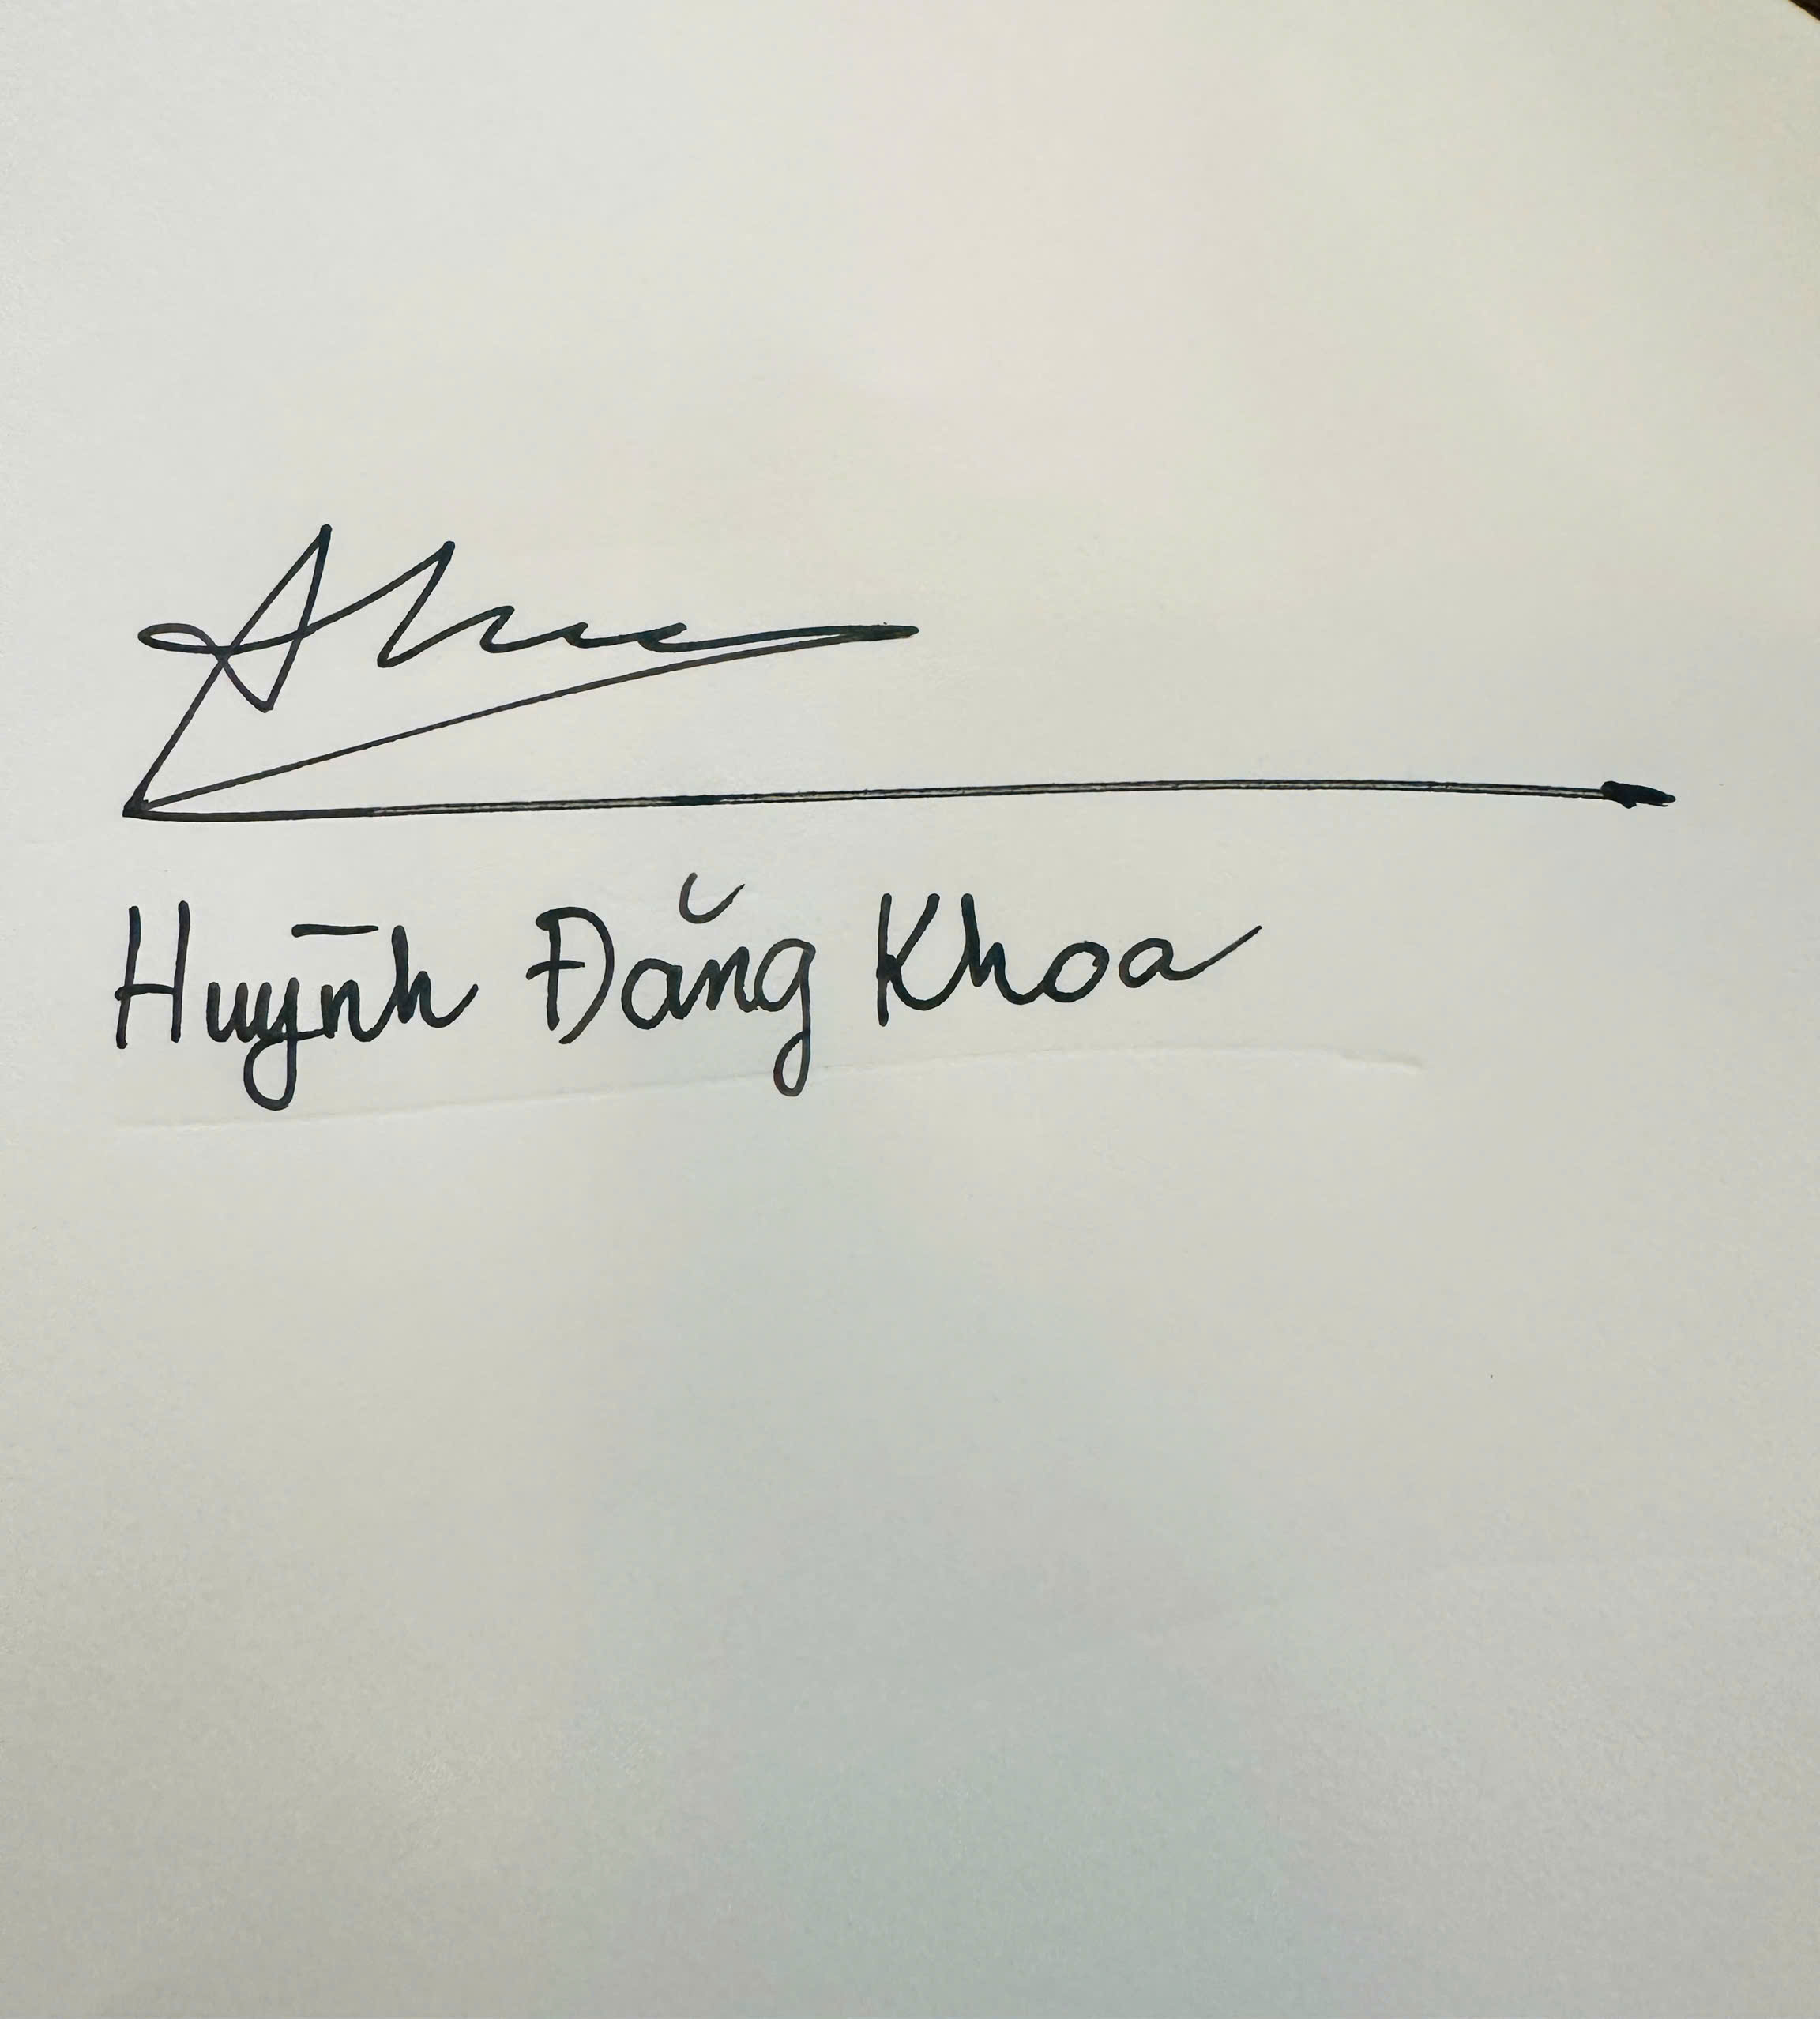 Huỳnh Đăng Khoa